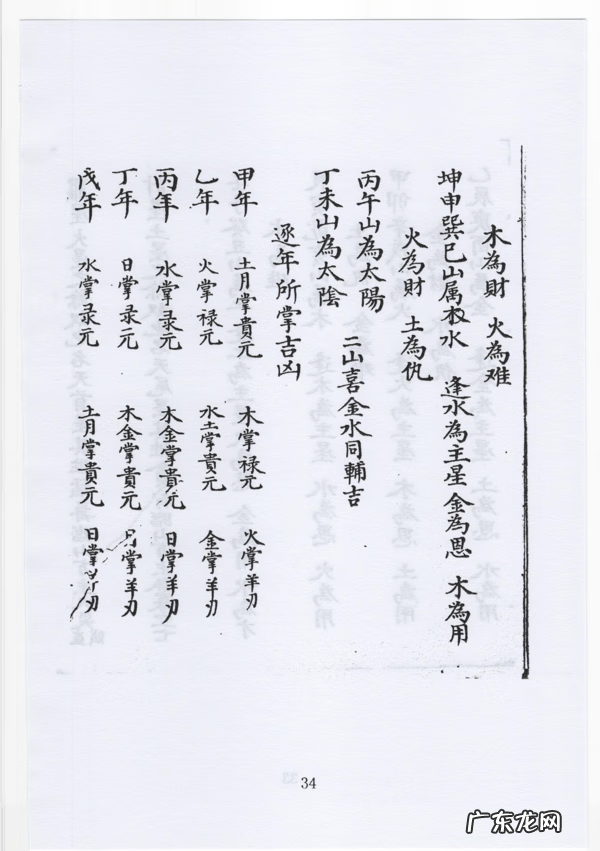 木為財 火為难
坤申巽巳山属水 逢水為主星 金為恩 木為用
火為財 土為仇
丙午山為太陽 二山喜金水同輔吉
丁未山為太陰
逐年所掌吉凶
甲年 土月掌貴元 木掌禄元 火掌羊刃
乙年 火掌禄元 水土掌貴元 金掌羊刃
丙年 水掌录元 木金掌貴元 日掌羊刃
丁年 日掌录元 木金掌貴元 月掌羊刃
戊年 水掌录元 土月掌貴元 日掌羊刃
34
广东龙网